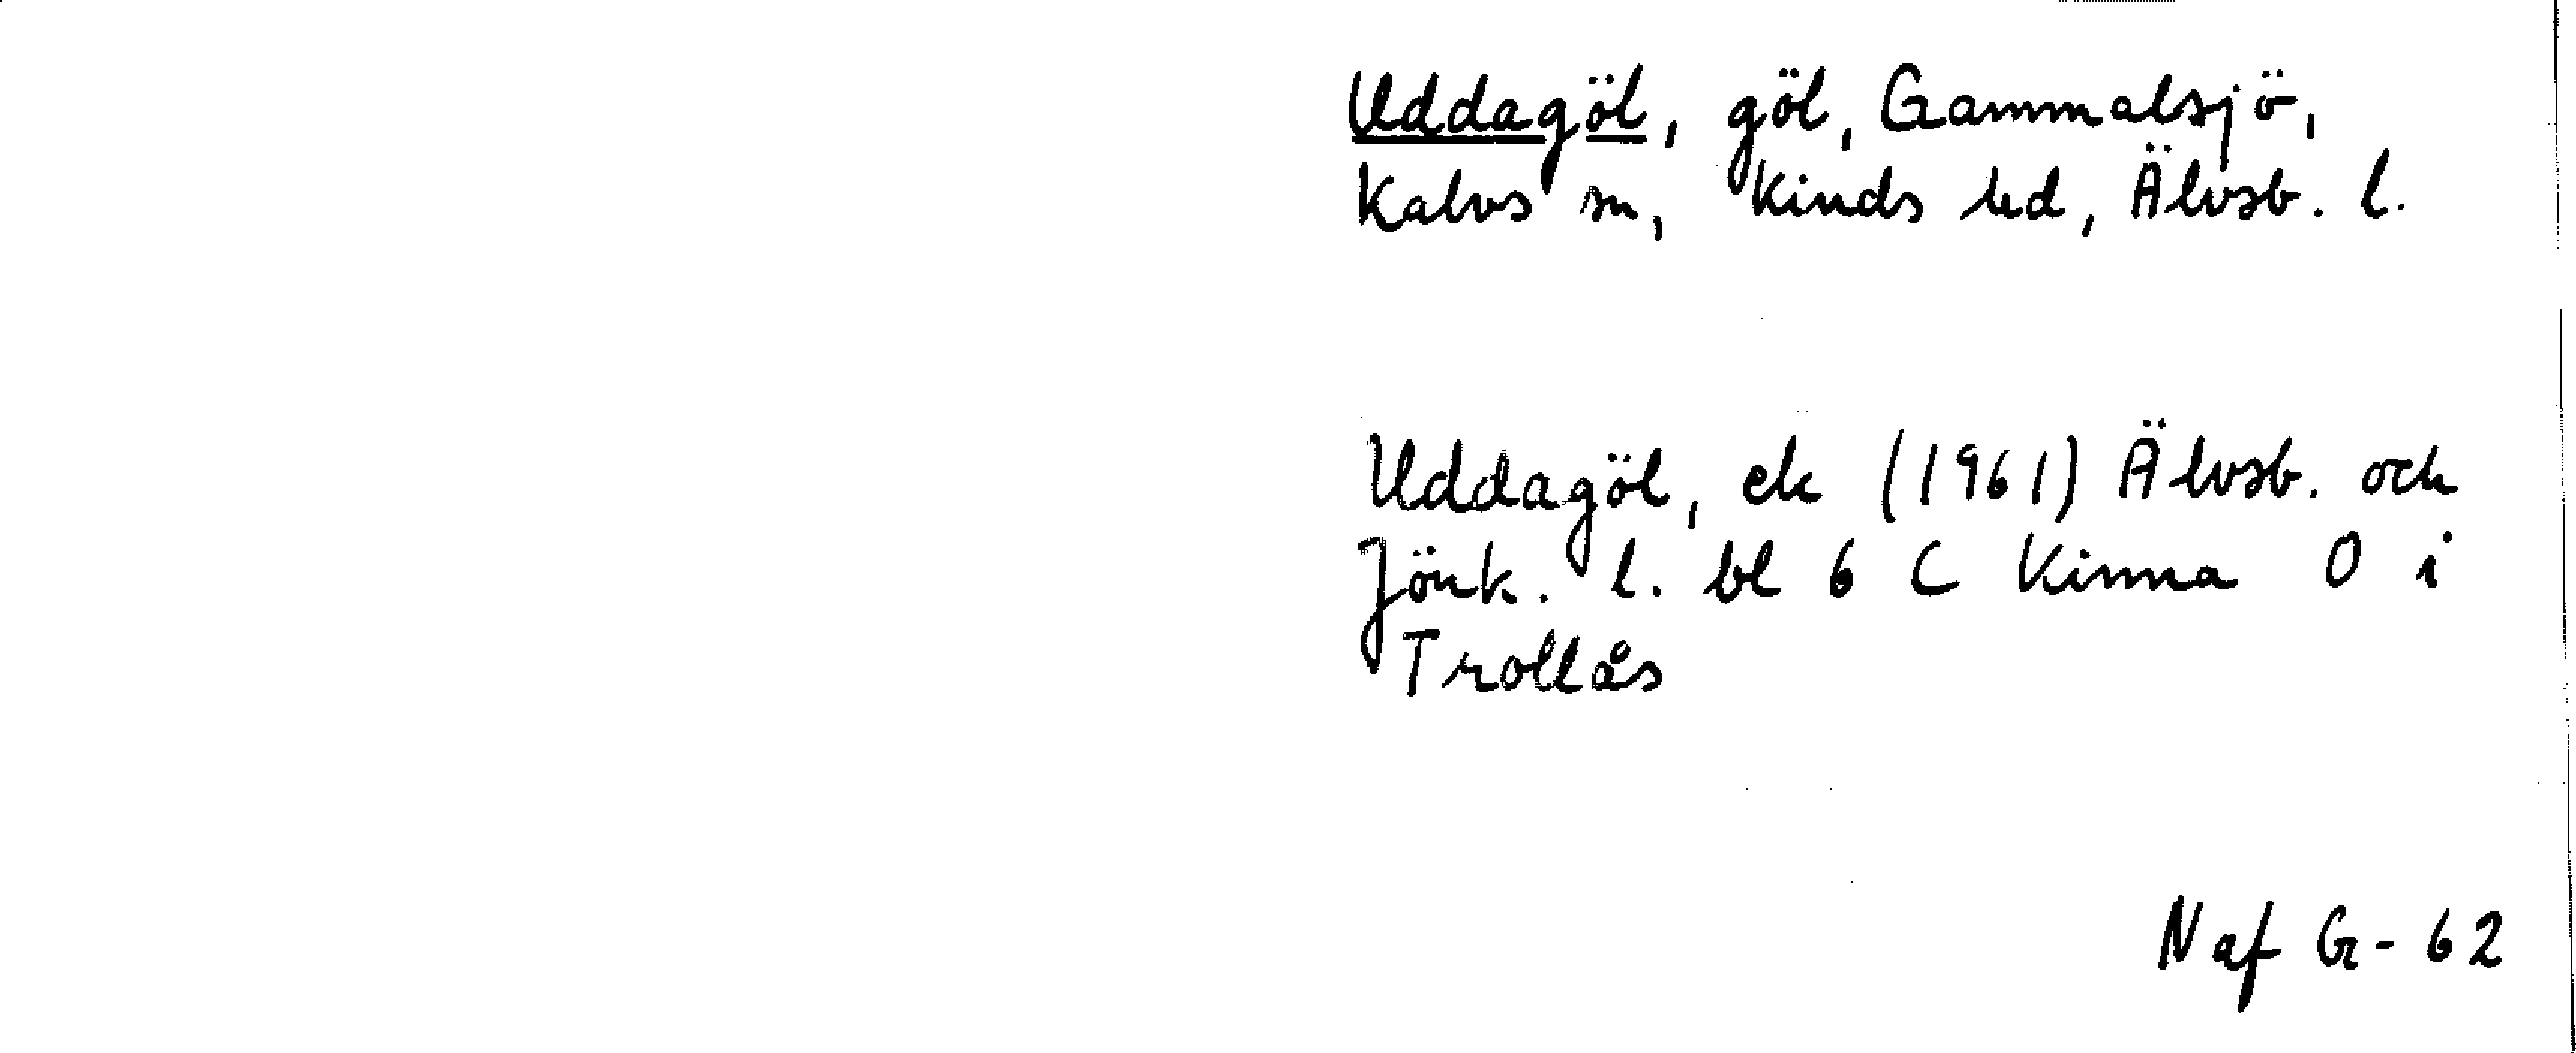 Uddagöl, göl, Gammalsjö,
Kalvs sn, Kinds hd, Älvsb. l.
Uddagöl, ek (1961) Älvsb. och
Jönk. l. bl 6 C Kinna O i
Trollås
N af G-62